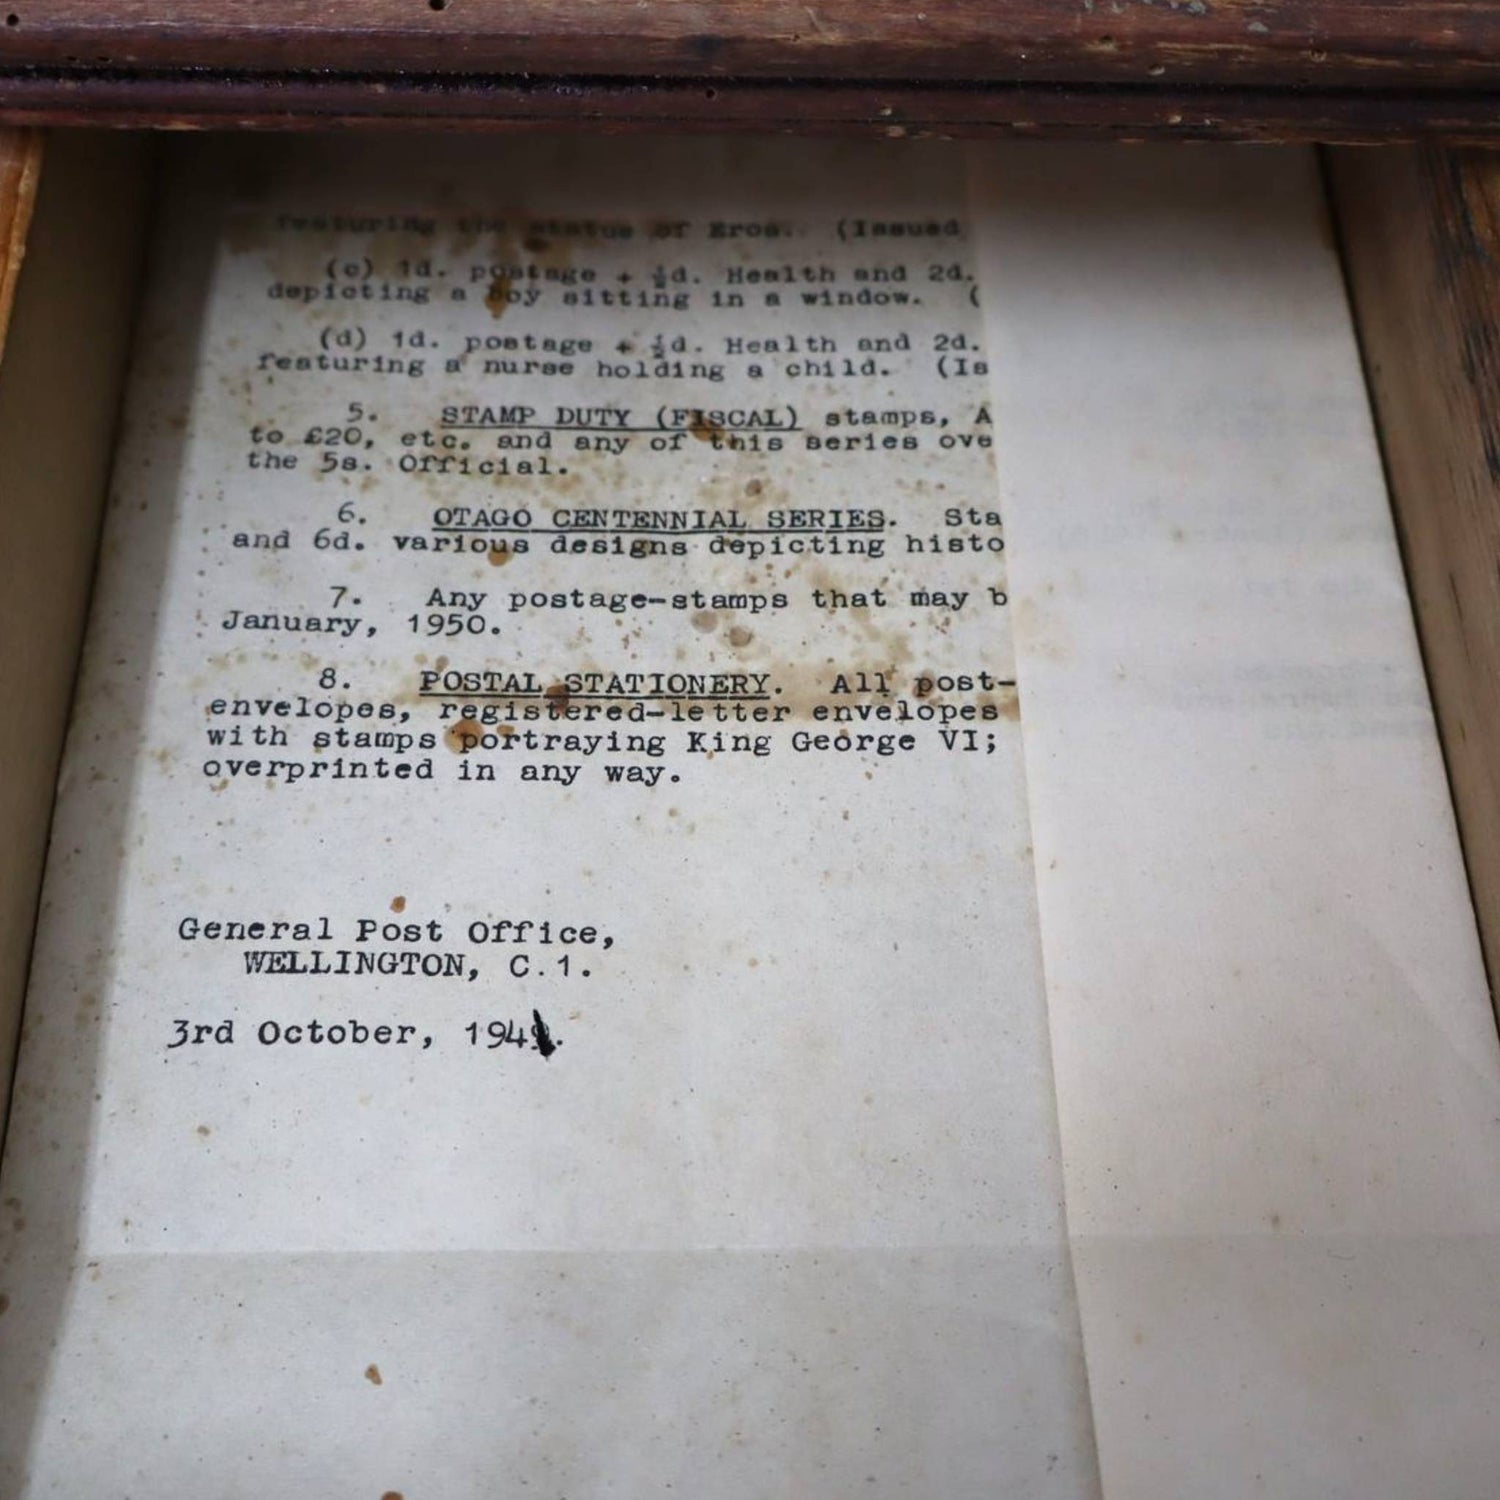 featuring the statue of Eros. (Issued
(c) 1d. postage + ½d. Health and 2d.
depicting a boy sitting in a window. (
(d) 1d. postage + ½d. Health and 2d.
featuring a nurse holding a child. (Is
5. STAMP DUTY (FISCAL) stamps, A
to £20, etc. and any of this series ove
the 5s. Official.
6. OTAGO CENTENNIAL SERIES. Sta
and 6d. various designs depicting histo
7. Any postage-stamps that may b
January, 1950.
8. POSTAL STATIONERY. All post-
envelopes, registered-letter envelopes
with stamps portraying King George VI;
overprinted in any way.
General Post Office,
WELLINGTON, C.1.
3rd October, 1949.